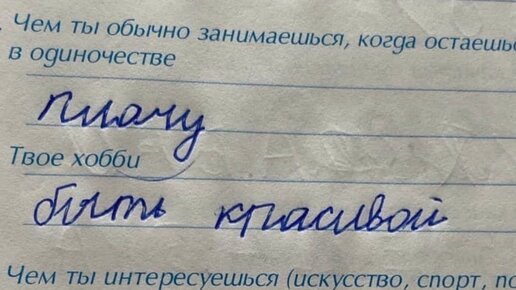 Чем ты обычно занимаешься, когда остаешьс
в одиночестве
плачу
Твое хобби
быть красивой
Чем ты интересуешься (искусство, спорт, по